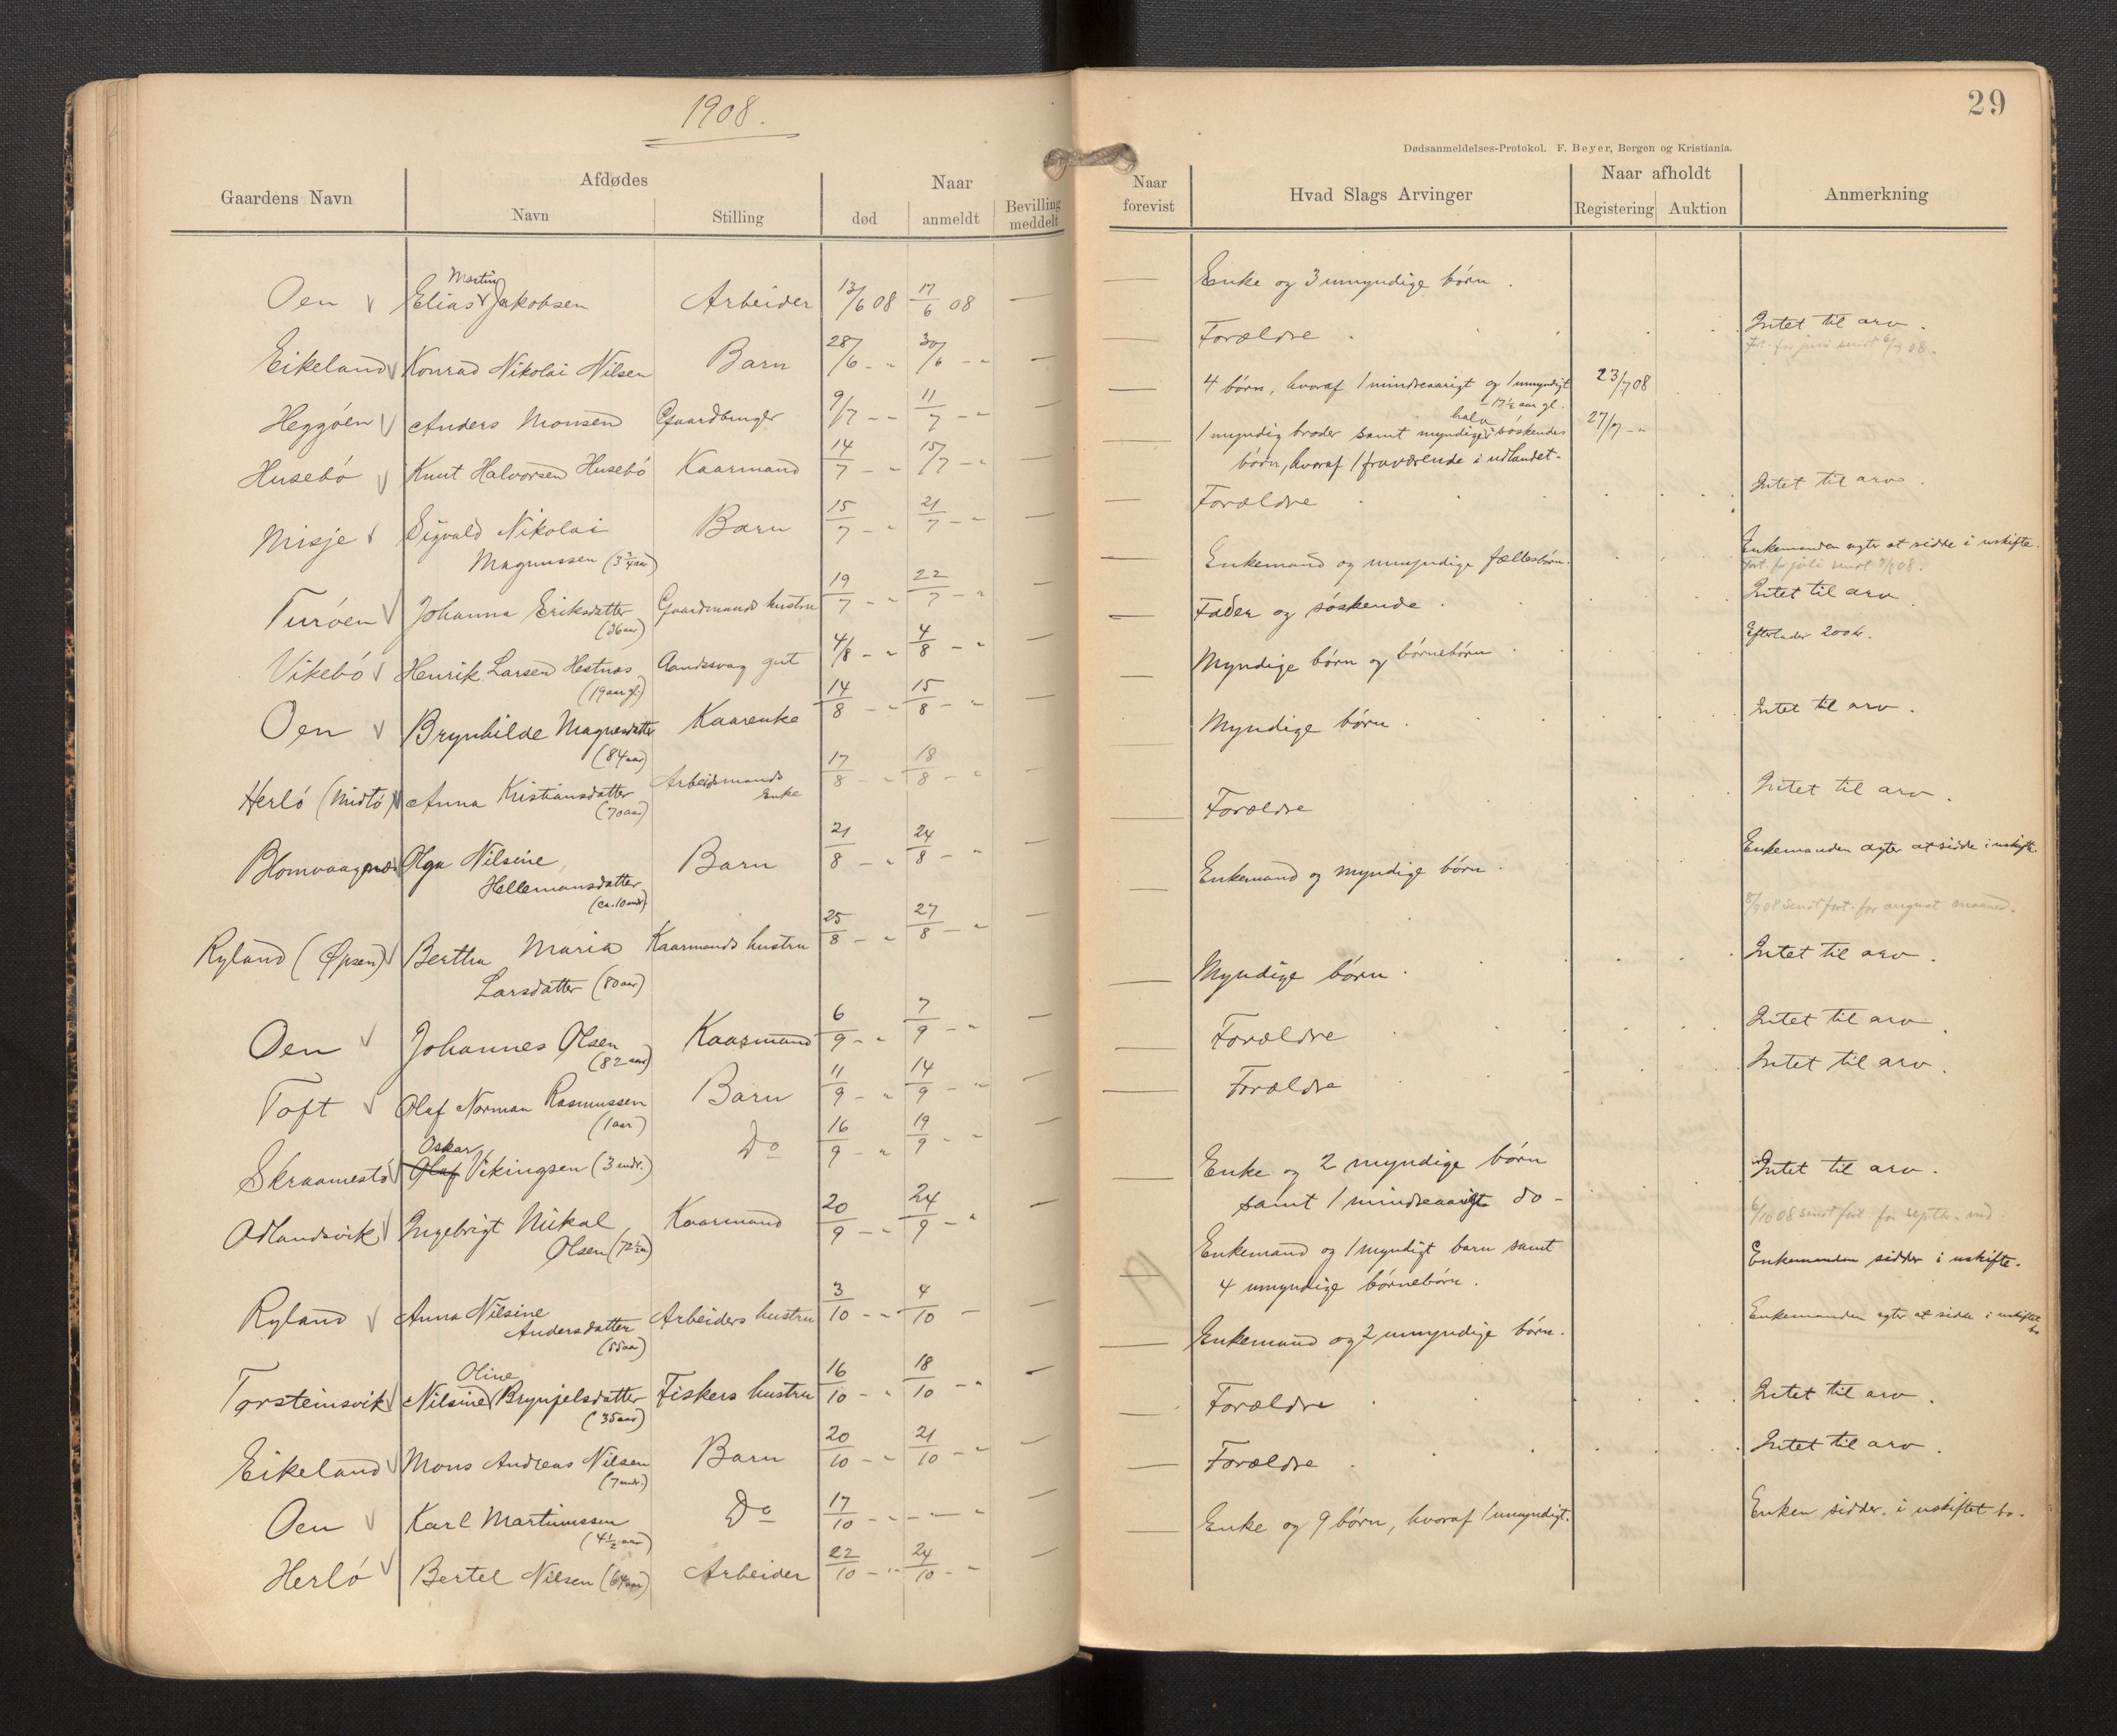 1908.
29
Dødsanmeldelses-Protokol. F. Beyer, Bergen og Kristiania.
Gaardens Navn
Afdødes
Navn
Stilling
Naar
død
anmeldt
Bevilling meddelt
Naar forevist
Hvad Slags Arvinger
Naar afholdt
Registering
Auktion
Anmerkning
Oen Elias Martin Jakobsen Arbeider 13/6 08 17/6 08 — — Enke og 3 umyndige børn.
Eikeland Konrad Nikolai Nilsen Barn 28/6 - " 30/6 - " — — Forældre Intet til arv.
fort. for juni sendt 6/7 08.
Heggøen Anders Monsen Gaardbruger 9/7 - - 11/7 - " — — 4 børn, hvoraf 1 mindreaarigt og 1 umyndigt 23/7 08
- 17½ aar gl.
Husebø Knut Halvorsen Husebø Kaarmand 14/7 - " 15/7 - " — — 1 myndig broder samt myndige halvsøskendes 27/7 - "
børn, hvoraf 1 fraværende i udlandet.
Misje Sigvald Nikolai Barn 15/7 - " 21/7 - " — — Forældre Intet til arv.
Magnussen (3¾ aar)
Turøen Johanna Eriksdatter Gaardmands hustru 19/7 - " 22/7 - " — — Enkemand og umyndige fællesbørn. Enkemanden agter at sidde i uskifte.
(36 aar)
fort. for juli sendt 7/8 08.
Vikebø Henrik Larsen Hestnas Aandssvag gut 4/8 - " 4/8 - " — — Fader og søskende. Intet til arv
(19 aar gl.)
Oen Brynhilde Magnesdatter Kaarenke 14/8 - " 15/8 - " — — Myndige børn og børnebørn. Efterlader 200 kr.
(84 aar)
Herlø (Midtø) Anna Kristiansdatter Arbeidsmands Enke 17/8 - " 18/8 - " — — Myndige børn. Intet til arv.
(70 aar)
Blomvaagnes Olga Nilsine Barn 21/8 - " 24/8 - " — — Forældre Intet til arv.
Hellemansdatter
(ca. 10 mdr)
Ryland (Øpsen) Bertha Maria Kaarmands hustru 25/8 - " 27/8 - " — — Enkemand og myndige børn. Enkemanden agter at sidde i uskifte.
Larsdatter (80 aar)
8/9 08 sendt fort. for august maaned.
Oen Johannes Olsen Kaarmand 6/9 - " 7/9 - " — — Myndige børn. Intet til arv.
(82 aar)
Toft Olaf Norman Rasmussen Barn 11/9 - " 14/9 - " — — Forældre Intet til arv.
(1 aar)
Skraamestø Olaf Oskar Vikingsen (3 mdr.) Do 16/9 - " 19/9 - " — — Forældre Intet til arv.
Adlandsvik Ingebrigt Mikal Kaarmand 20/9 - " 24/9 - " — — Enke og 2 myndige børn Intet til arv.
Olsen (72½ aar) samt 1 mindreaarigt do -
6/10 08 sendt fort for septbr. md.
Ryland Anna Nilsine Arbeiders hustru 3/10 - " 4/10 - — — Enkemand og 1 myndigt barn samt Enkemanden sidder i uskifte.
Andersdatter 4 umyndige børnebørn.
(55 aar)
Torsteinsvik Nilsine Oline Brynjelsdatter Fiskers hustru 16/10 - " 18/10 - " — — Enkemand og 2 umyndige børn. Enkemanden agter at sidde i uskiftet bo
(35 aar)
Eikeland Mons Andreas Nilsen Barn 20/10 - " 21/10 - " — — Forældre Intet til arv.
(7 mdr.)
Oen Karl Martinussen Do 17/10 - " - — " — — Forældre Intet til arv.
(4½ aar)
Herlø Bertel Nilsen (64 aar) Arbeider 22/10 - " 24/10 - " — — Enke og 9 børn, hvoraf 1 umyndigt. Enken sidder i uskiftet bo.